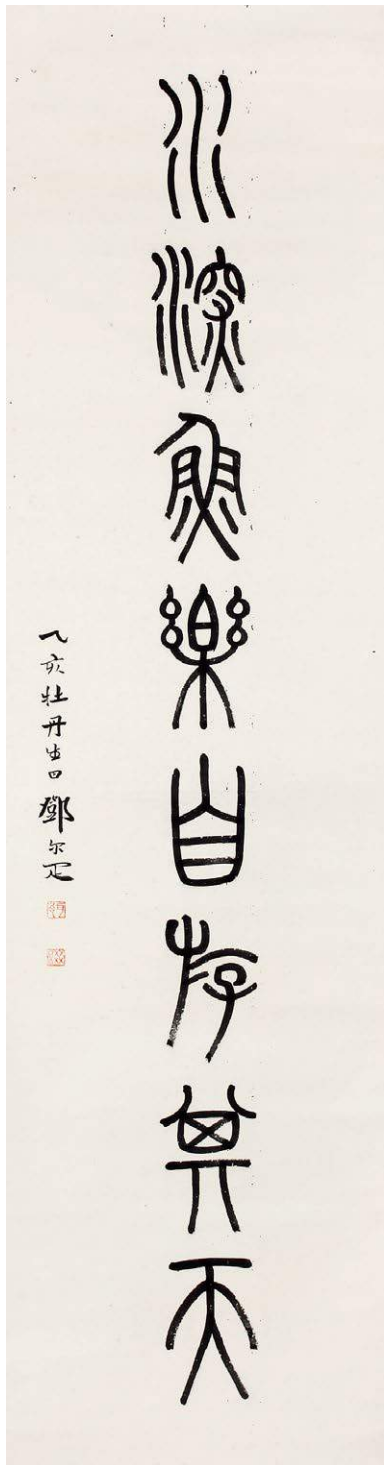 水深魚樂自存其天
乙亥牡丹生日鄧尔疋